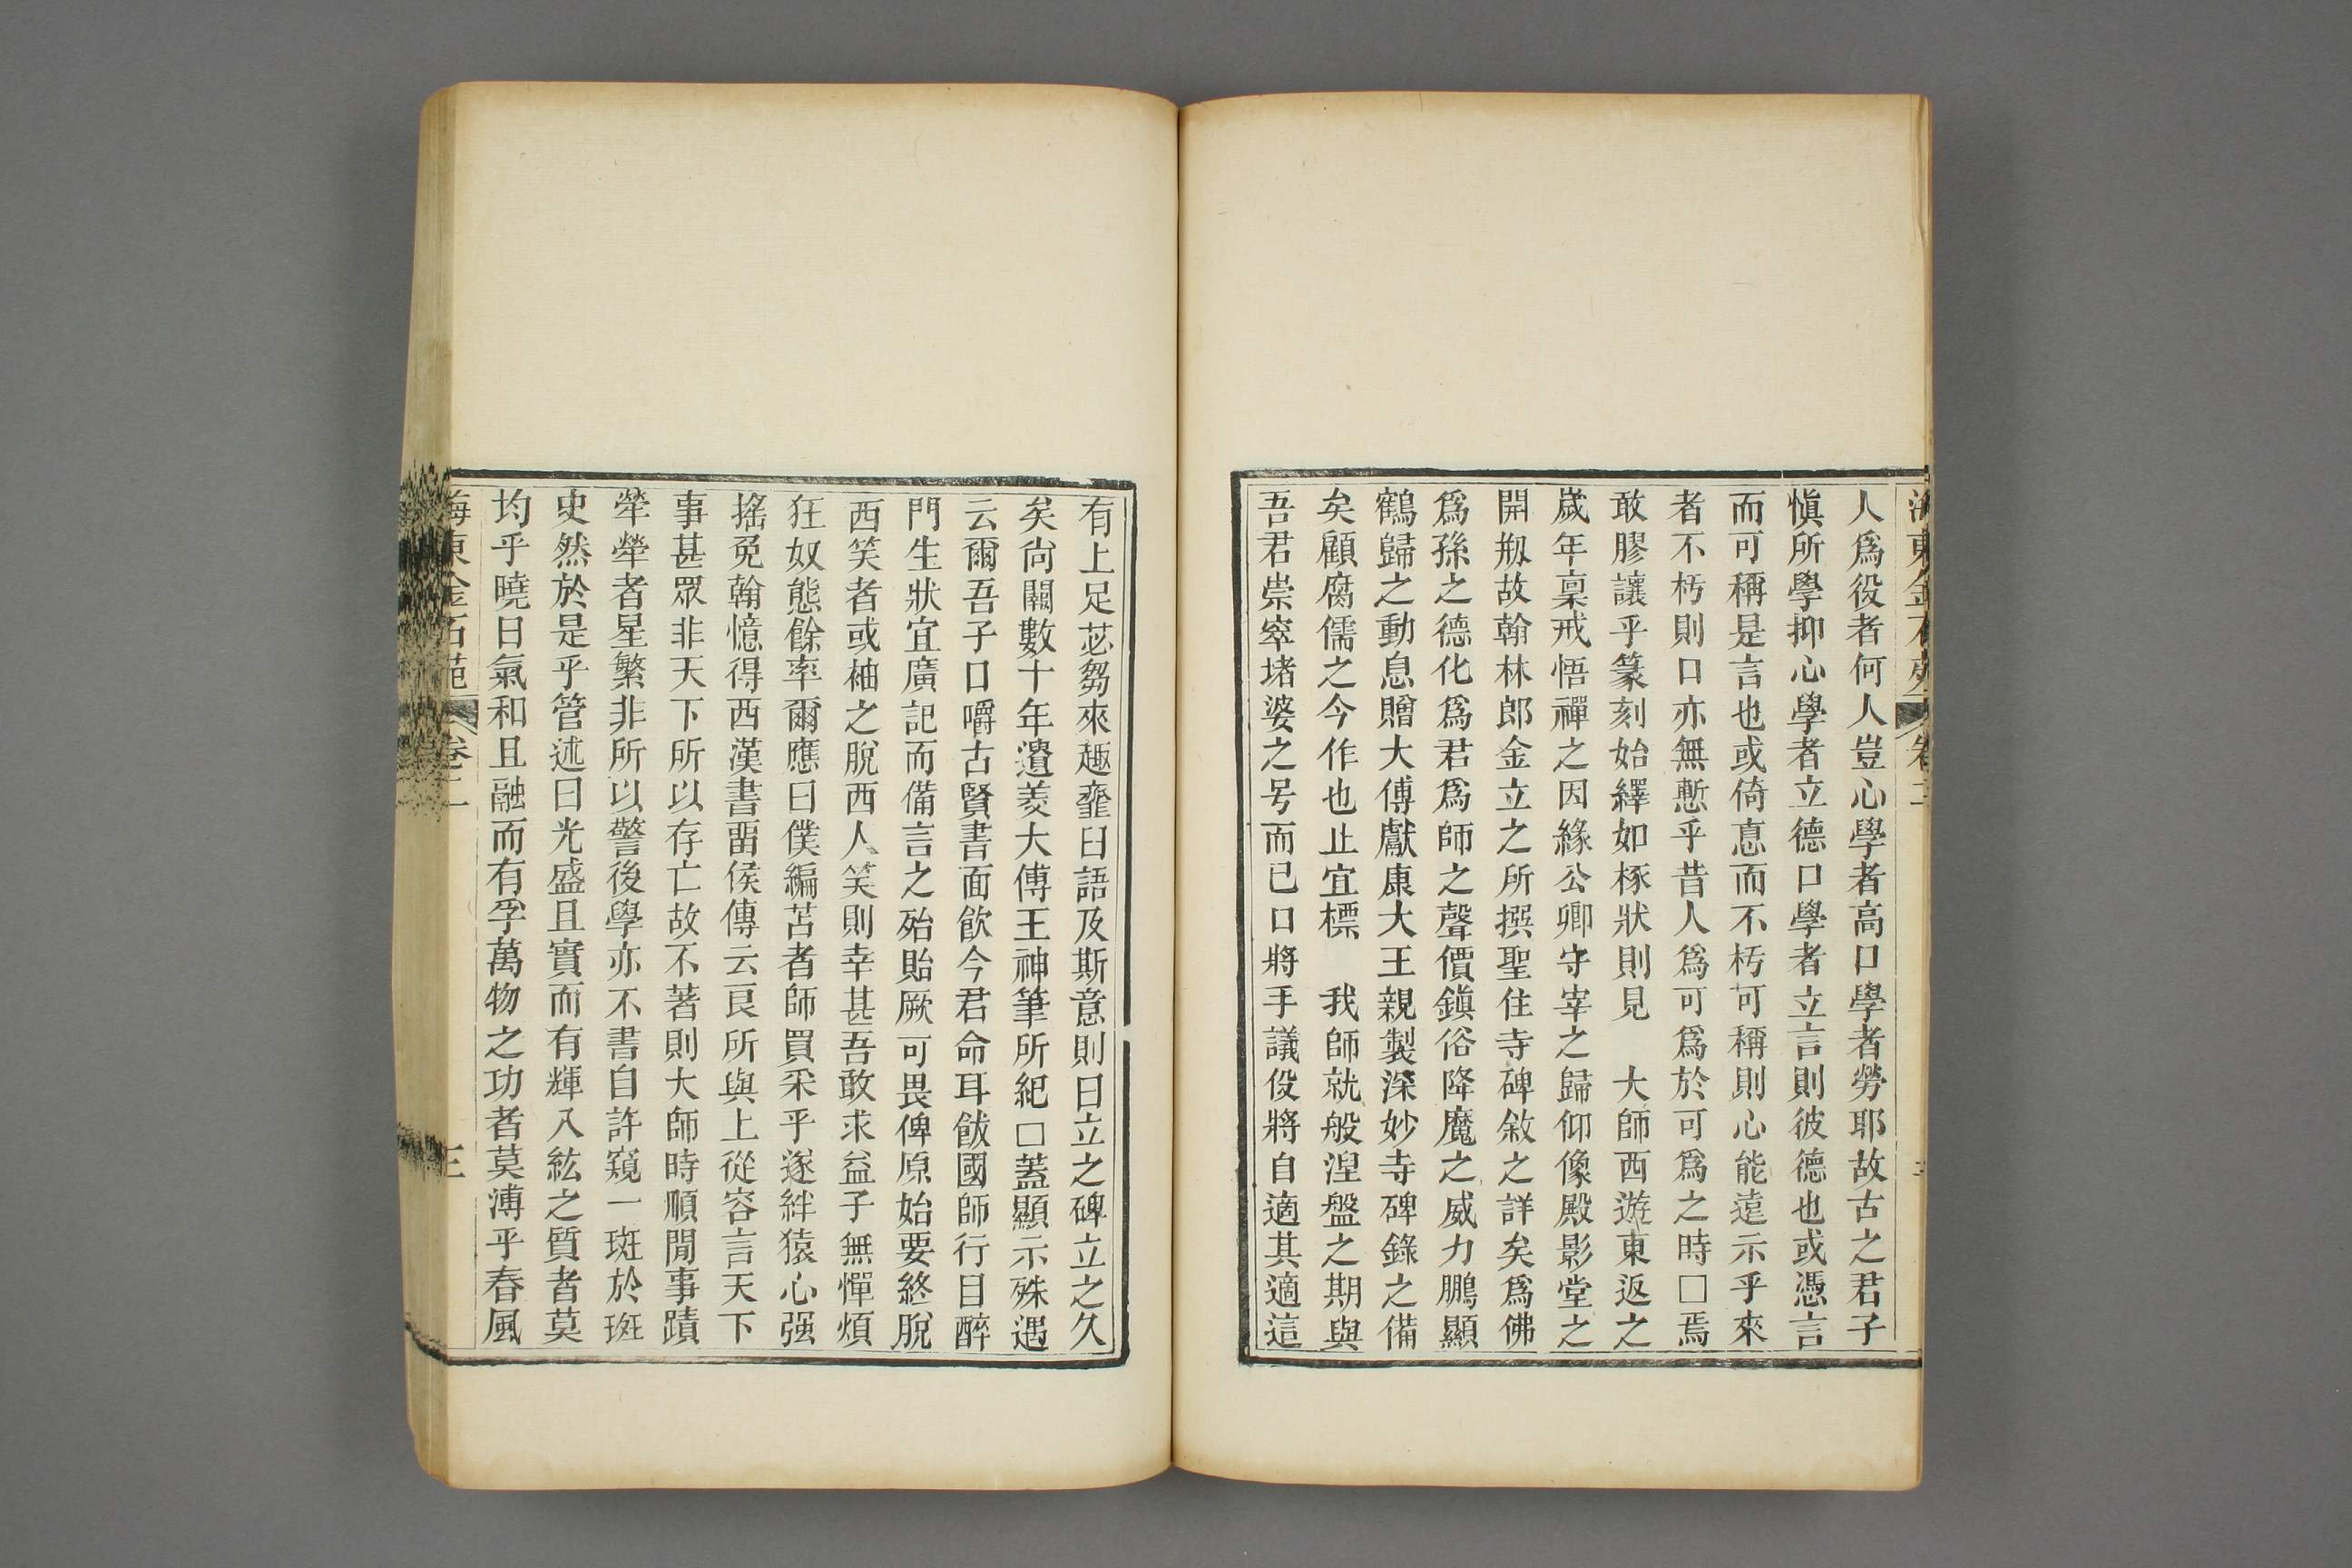 海東金石苑 卷二
人爲役者何人豈心學者高口學者勞耶故古之君子
愼所學抑心學者立德口學者立言則彼德也或憑言
而可稱是言也或倚悳而不朽可稱則心能遠示乎來
者不朽則口亦無慙乎昔人爲可爲於可爲之時□焉
敢膠讓乎篆刻始繹如椓狀則見　大師西遊東返之
歲年稟戒悟禪之因緣公卿守宰之歸仰像殿影堂之
開剏故翰林郎金立之所撰聖住寺碑敘之詳矣爲佛
爲孫之德化爲君爲師之聲價鎭俗降魔之威力鵬顯
鶴歸之動息贈大傅獻康大王親製深妙寺碑錄之備
矣顧腐儒之今作也止宜標　我師就般涅盤之期與
吾君崇窣堵婆之号而已口將手議伇將自適其適這
有上足苾芻來趣虀臼語及斯意則曰立之碑立之久
矣尙闕數十年遺羙大傅王神筆所紀□蓋顯示殊遇
云爾吾子口嚼古賢書面飮今君命耳飫國師行目醉
門生狀宜廣記而備言之殆貽厥可畏俾原始要終脫
西笑者或袖之脫西人笑則幸甚吾敢求益子無憚煩
狂奴態餘率爾應曰僕編苫者師買采乎遂絆猿心强
搖兎翰憶得西漢書畱侯傳云良所與上從容言天下
事甚眾非天下所以存亡故不著則大師時順閒事蹟
犖犖者星繁非所以警後學亦不書自許窺一斑於班
史然於是乎管述曰光盛且實而有輝八紘之質者莫
均乎曉日氣和且融而有孚萬物之功者莫溥乎春風
海東金石苑 卷二 三